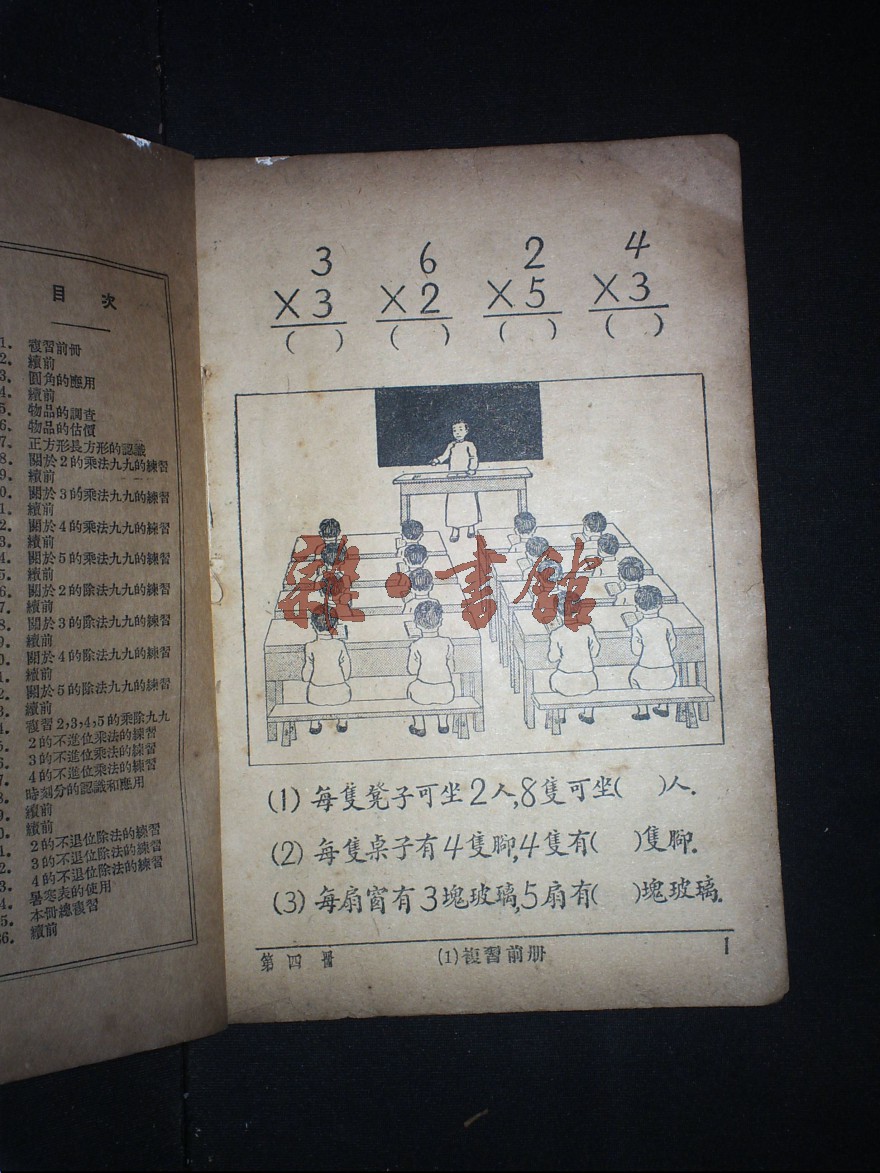 目次
1. 複習前冊
2. 續前
3. 圓角的應用
4. 續前
5. 物品的調查
6. 物品的估價
7. 正方形長方形的認識
8. 關於2的乘法九九的練習
9. 續前
0. 關於3的乘法九九的練習
1. 續前
2. 關於4的乘法九九的練習
3. 續前
4. 關於5的乘法九九的練習
5. 續前
6. 關於2的除法九九的練習
7. 續前
8. 關於3的除法九九的練習
9. 續前
0. 關於4的除法九九的練習
1. 續前
2. 關於5的除法九九的練習
3. 續前
4. 複習2,3,4,5的乘除九九
5. 2的不進位乘法的練習
6. 3的不進位乘法的練習
7. 4的不進位乘法的練習
8. 時刻分的認識和應用
9. 續前
0. 續前
1. 2的不退位除法的練習
2. 3的不退位除法的練習
3. 4的不退位除法的練習
4. 暑寒表的使用
5. 本冊總複習
36. 續前
3 6 2 4
×3 ×2 ×5 ×3
( ) ( ) ( ) ( )
雜·書館
(1) 每隻凳子可坐2人,8隻可坐( )人.
(2) 每隻桌子有4隻腳,4隻有( )隻腳.
(3) 每扇窗有3塊玻璃,5扇有( )塊玻璃.
第四冊 (1)複習前册 1